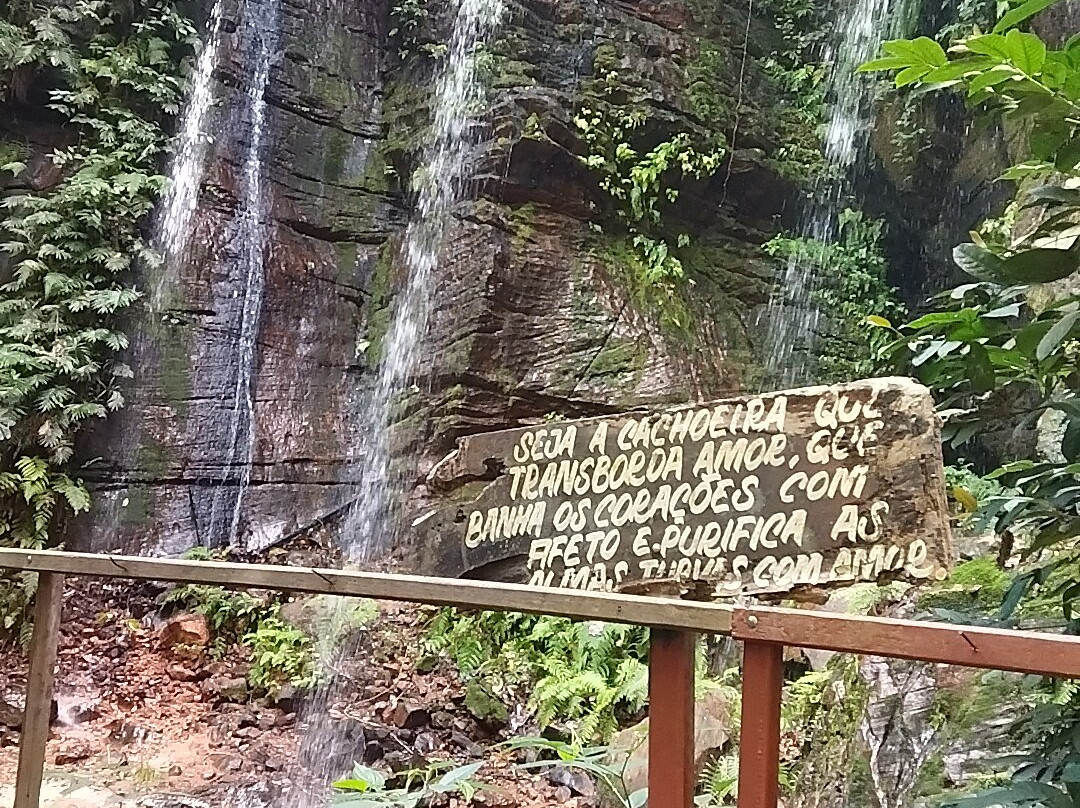 SEJA A CACHOEIRA QUE
TRANSBORDA AMOR, QUE
BANHA OS CORAÇÕES COM
AFETO E PURIFICA AS
ALMAS TURVAS COM AMOR